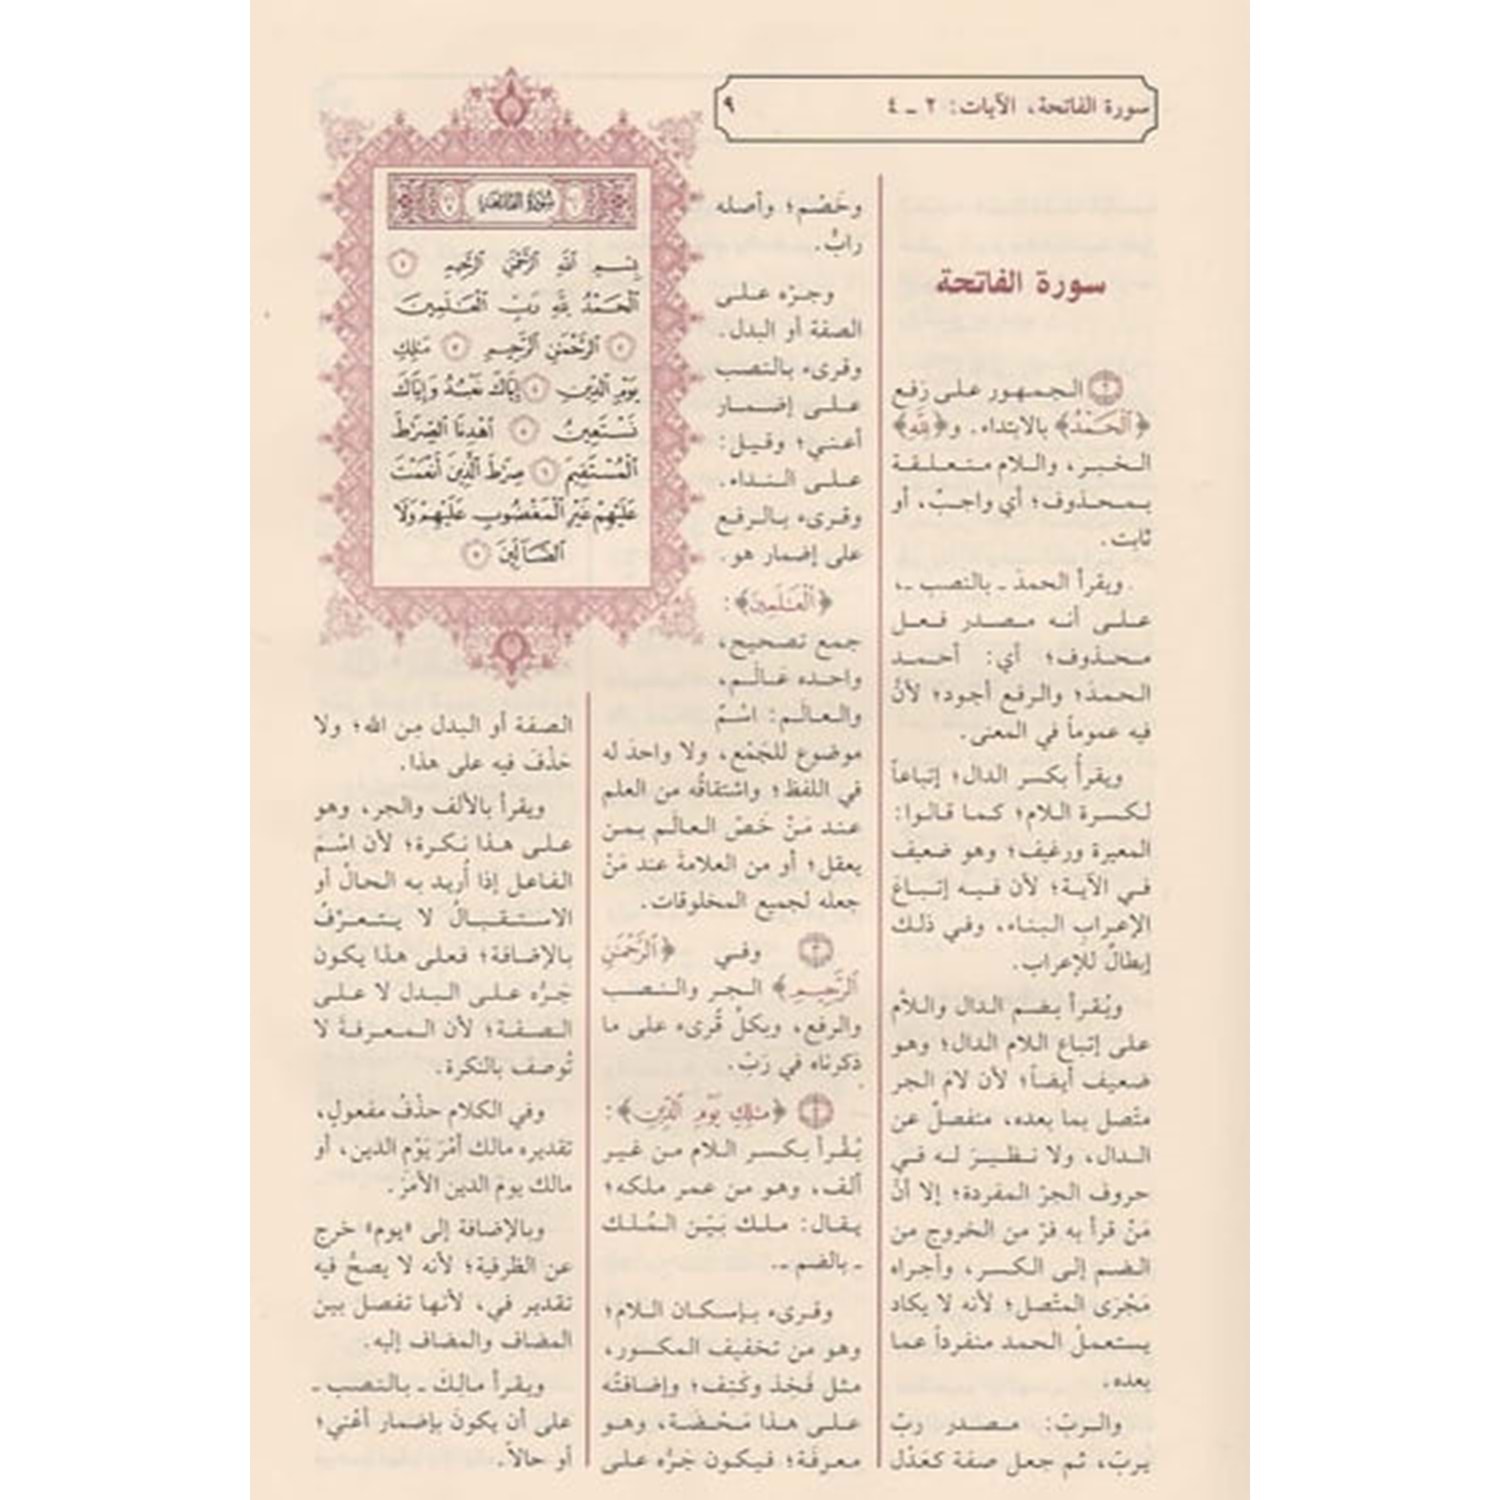 سورة الفاتحة، الآيات: ٢ ـ ٤
٩
سورة الفاتحة
﴿٢﴾ الجمهور على رَفع
﴿ٱلْحَمْدُ﴾ بالابتداء. و﴿لِلَّهِ﴾
الخبر، واللام متعلقة
بمحذوف؛ أي واجبٌ، أو
ثابت.
ويقرأ الحمدَ ـ بالنصب ـ،
على أنه مصدر فعل
محذوف؛ أي: أحمد
الحمدَ؛ والرفع أجود؛ لأنَّ
فيه عموماً في المعنى.
ويقرأُ بكسر الدال؛ إتباعاً
لكسرة اللام؛ كما قالوا:
المعيرة ورغيف؛ وهو ضعيف
في الآية؛ لأن فيه إتباعَ
الإعرابِ البناء، وفي ذلك
إبطالٌ للإعراب.
ويُقرأ بضم الدال واللام
على إتباع اللام الدال؛ وهو
ضعيف أيضاً؛ لأن لامَ الجر
متّصل بما بعده، منفصلٌ عن
الدال، ولا نظيرَ له في
حروف الجرّ المفردة؛ إلا أنَّ
مَنْ قرأ به فرّ من الخروج من
الضم إلى الكسر، وأجراه
مَجْرَى المتّصل؛ لأنه لا يكاد
يستعملُ الحمد منفرداً عما
بعده.
والربّ: مصدر ربّ
يَربّ، ثم جعل صفة كعَدْل
وخَصْم؛ وأصله
رابٌّ.
وجرّه على
الصفة أو البدل.
وقرىء بالنصب
على إضمار
أعني؛ وقيل:
على النداء.
وقرىء بالرفع
على إضمار هو.
﴿ٱلْعَٰلَمِينَ﴾:
جمع تصحيح،
واحده عَالَم،
والعالَم: اسْمٌ
موضوع للجَمْع، ولا واحدَ له
في اللفظ؛ واشتقاقُه من العلم
عند مَنْ خَصّ العالَم بمن
يعقل؛ أو من العلامة عند مَنْ
جعله لجميع المخلوقات.
﴿٣﴾ وفي ﴿ٱلرَّحْمَٰنِ
ٱلرَّحِيمِ﴾ الجر والنصب
والرفع، وبكلّ قُرىء على ما
ذكرناه في رَبّ.
﴿٤﴾ ﴿مَٰلِكِ يَوْمِ ٱلدِّينِ﴾:
يُقْرأ بكسر اللام من غير
ألف، وهو من عمر ملكه؛
يقال: ملك بَيّن المُلك
ـ بالضم ـ.
وقرىء بإسكان اللام؛
وهو من تخفيف المكسور،
مثل فَخِذ وكَتِف؛ وإضافتُه
على هذا مَحْضَة، وهو
معرفة؛ فيكون جَرُّه على
سُورَةُ الفَاتِحَةِ
بِسْمِ ٱللَّهِ ٱلرَّحْمَٰنِ ٱلرَّحِيمِ ١
ٱلْحَمْدُ لِلَّهِ رَبِّ ٱلْعَٰلَمِينَ
٢ ٱلرَّحْمَٰنِ ٱلرَّحِيمِ ٣ مَٰلِكِ
يَوْمِ ٱلدِّينِ ٤ إِيَّاكَ نَعْبُدُ وَإِيَّاكَ
نَسْتَعِينُ ٥ ٱهْدِنَا ٱلصِّرَٰطَ
ٱلْمُسْتَقِيمَ ٦ صِرَٰطَ ٱلَّذِينَ أَنْعَمْتَ
عَلَيْهِمْ غَيْرِ ٱلْمَغْضُوبِ عَلَيْهِمْ وَلَا
ٱلضَّآلِّينَ ٧
الصفة أو البدل مِن الله؛ ولا
حَذْفَ فيه على هذا.
ويقرأ بالألف والجر، وهو
على هذا نكرة؛ لأن اسْمَ
الفاعل إذا أُريد به الحالُ أو
الاستقبالُ لا يتعرّفُ
بالإضافة؛ فعلى هذا يكون
جَرُّه على البدل لا على
الصفة؛ لأن المعرفةَ لا
تُوصف بالنكرة.
وفي الكلام حذْفُ مفعولٍ،
تقديره مالك أمْرَ يَوْم الدين، أو
مالك يومَ الدين الأمْرَ.
وبالإضافة إلى «يوم» خرج
عن الظرفية؛ لأنه لا يصحُّ فيه
تقدير في، لأنها تفصل بين
المضاف والمضاف إليه.
ويقرأ مالِكَ ـ بالنصب ـ
على أن يكونَ بإضمار أعْني؛
أو حالاً.